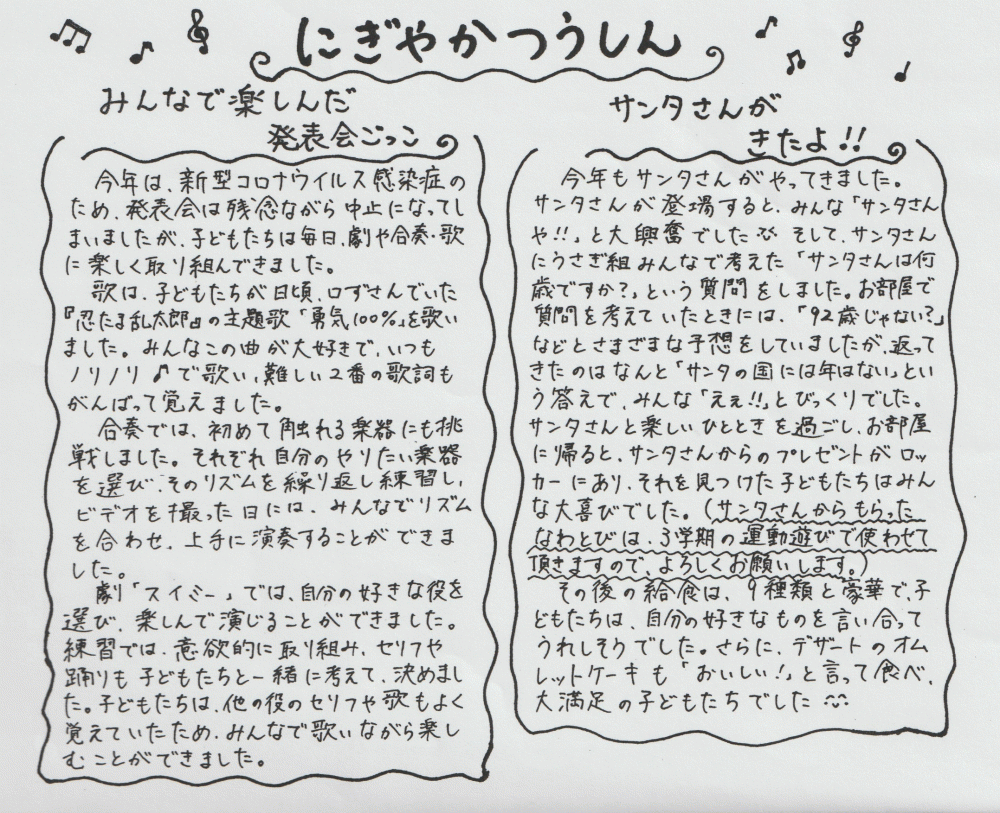 にぎやかつうしん
みんなで楽しんだ
発表会ごっこ
今年は、新型コロナウイルス感染症の
ため、発表会は残念ながら中止になってし
まいましたが、子どもたちは毎日、劇や合奏・歌
に楽しく取り組んできました。
歌は、子どもたちが日頃、口ずさんでいた
『忍たま乱太郎』の主題歌「勇気100%」を歌い
ました。みんなこの曲が大好きで、いつも
ノリノリ♪で歌い、難しい2番の歌詞も
がんばって覚えました。
合奏では、初めて触れる楽器にも挑
戦しました。それぞれ自分のやりたい楽器
を選び、そのリズムを繰り返し練習し、
ビデオを撮った日には、みんなでリズム
を合わせ、上手に演奏することができま
した。
劇「スイミー」では、自分の好きな役を
選び、楽しんで演じることができました。
練習では、意欲的に取り組み、セリフや
踊りも子どもたちと一緒に考えて、決めまし
た。子どもたちは、他の役のセリフや歌もよく
覚えていたため、みんなで歌いながら楽し
むことができました。
サンタさんが
きたよ!!
今年もサンタさんがやってきました。
サンタさんが登場すると、みんな「サンタさん
や!!」と大興奮でした そして、サンタさん
にうさぎ組みんなで考えた「サンタさんは何
歳ですか?」という質問をしました。お部屋で
質問を考えていたときには、「92歳じゃない?」
などとさまざまな予想をしていましたが、返って
きたのはなんと「サンタの国には年はない」とい
う答えで、みんな「えぇ!!」とびっくりでした。
サンタさんと楽しいひとときを過ごし、お部屋
に帰ると、サンタさんからのプレゼントがロッ
カーにあり、それを見つけた子どもたちはみん
な大喜びでした。(サンタさんからもらった
なわとびは、3学期の運動遊びで使わせて
頂きますので、よろしくお願いします。)
その後の給食は、9種類と豪華で、子
どもたちは、自分の好きなものを言い合って
うれしそうでした。さらに、デザートのオム
レットケーキも「おいしい!」と言って食べ、
大満足の子どもたちでした